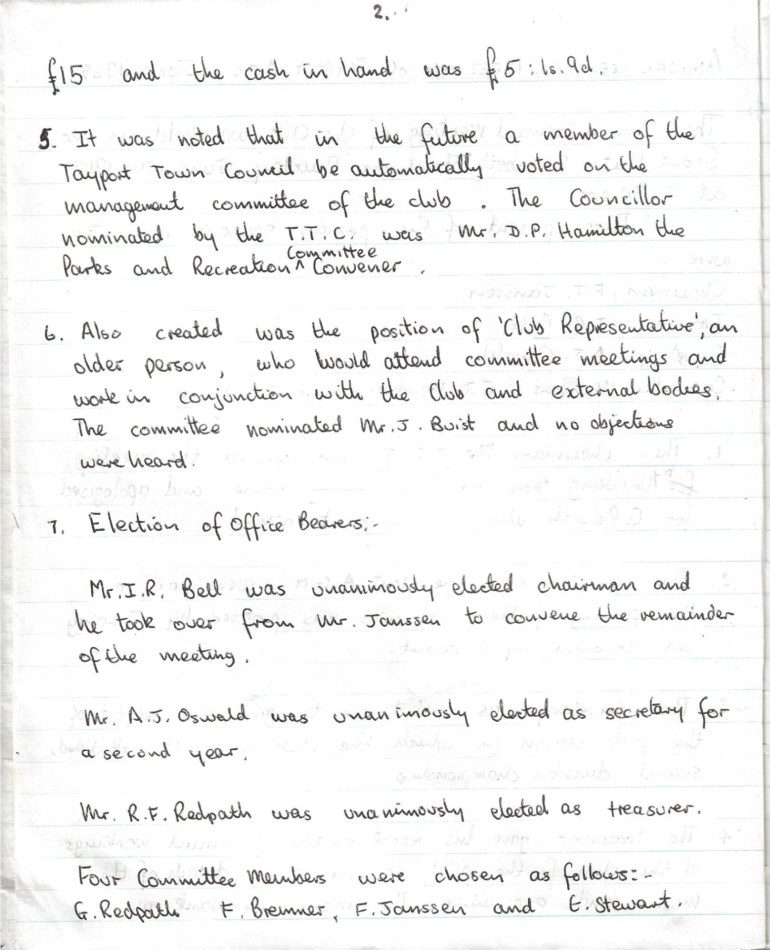 2.
£15 and the cash in hand was £5:1s.9d.
5. It was noted that in the future a member of the
Tayport Town Council be automatically voted on the
management committee of the club. The Councillor
nominated by the T.T.C. was Mr. D.P. Hamilton the
Parks and Recreation ^Committee Convener.
6. Also created was the position of 'Club Representative', an
older person, who would attend committee meetings and
work in conjunction with the Club and external bodies.
The committee nominated Mr. J. Buist and no objections
were heard.
7. Election of Office Bearers:-
Mr. I.R. Bell was unanimously elected chairman and
he took over from Mr. Janssen to convene the remainder
of the meeting.
Mr. A.J. Oswald was unanimously elected as secretary for
a second year.
Mr. R.F. Redpath was unanimously elected as treasurer.
Four Committee Members were chosen as follows:-
G. Redpath F. Bremner, F. Janssen and E. Stewart.